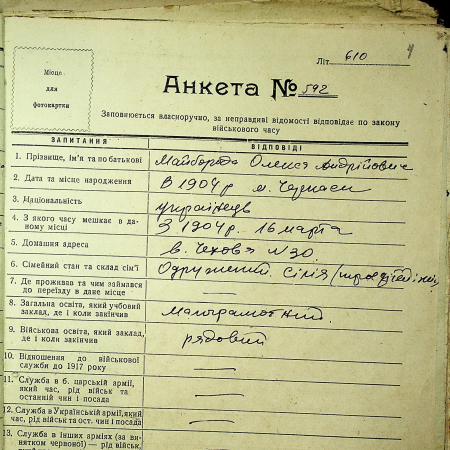 Літ. 610
4
Місце
для
фотокартки
Анкета № 592
Заповнюється власноручно, за неправдиві відомості відповідає по закону
військового часу
ЗАПИТАННЯ ВІДПОВІДІ
1. Прізвище, ім'я та по батькові Майборода Олекса Андрійович
2. Дата та місце народження В 1904 р м. Черкаси
3. Національність українець
4. З якого часу мешкає в да-
ному місці З 1904 р. 16 марта
5. Домашня адреса в. Чехова N 30.
6. Сімейний стан та склад сім'ї Одружений. Сімія
7. Де проживав та чим займався
до переїзду в дане місце
8. Загальна освіта, який учбовий
заклад, де і коли закінчив Малограмотний.
9. Військова освіта, який заклад,
де і коли закінчив рядовий
10. Відношення до військової
служби до 1917 року —
11. Служба в б. царській армії,
який час, рід військ та
останній чин і посада —
12. Служба в Українській армії, який
час, рід військ та ост. чин і посада —
13. Служба в інших арміях (за ви-
нятком червоної) — рід військ,